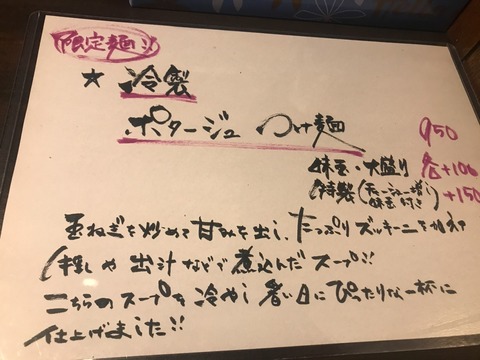 限定麺!!
★ 冷製
ポタージュ つけ麺 950
味玉・大盛り 各+100
特製(チャーシュー増し 味玉付き) +150
玉ねぎを炒めて甘みを出し、たっぷりズッキーニを加え
塩しや出汁などで煮込んだスープ!!
こちらのスープを冷やし暑い日にぴったりな一杯に
仕上げました!!